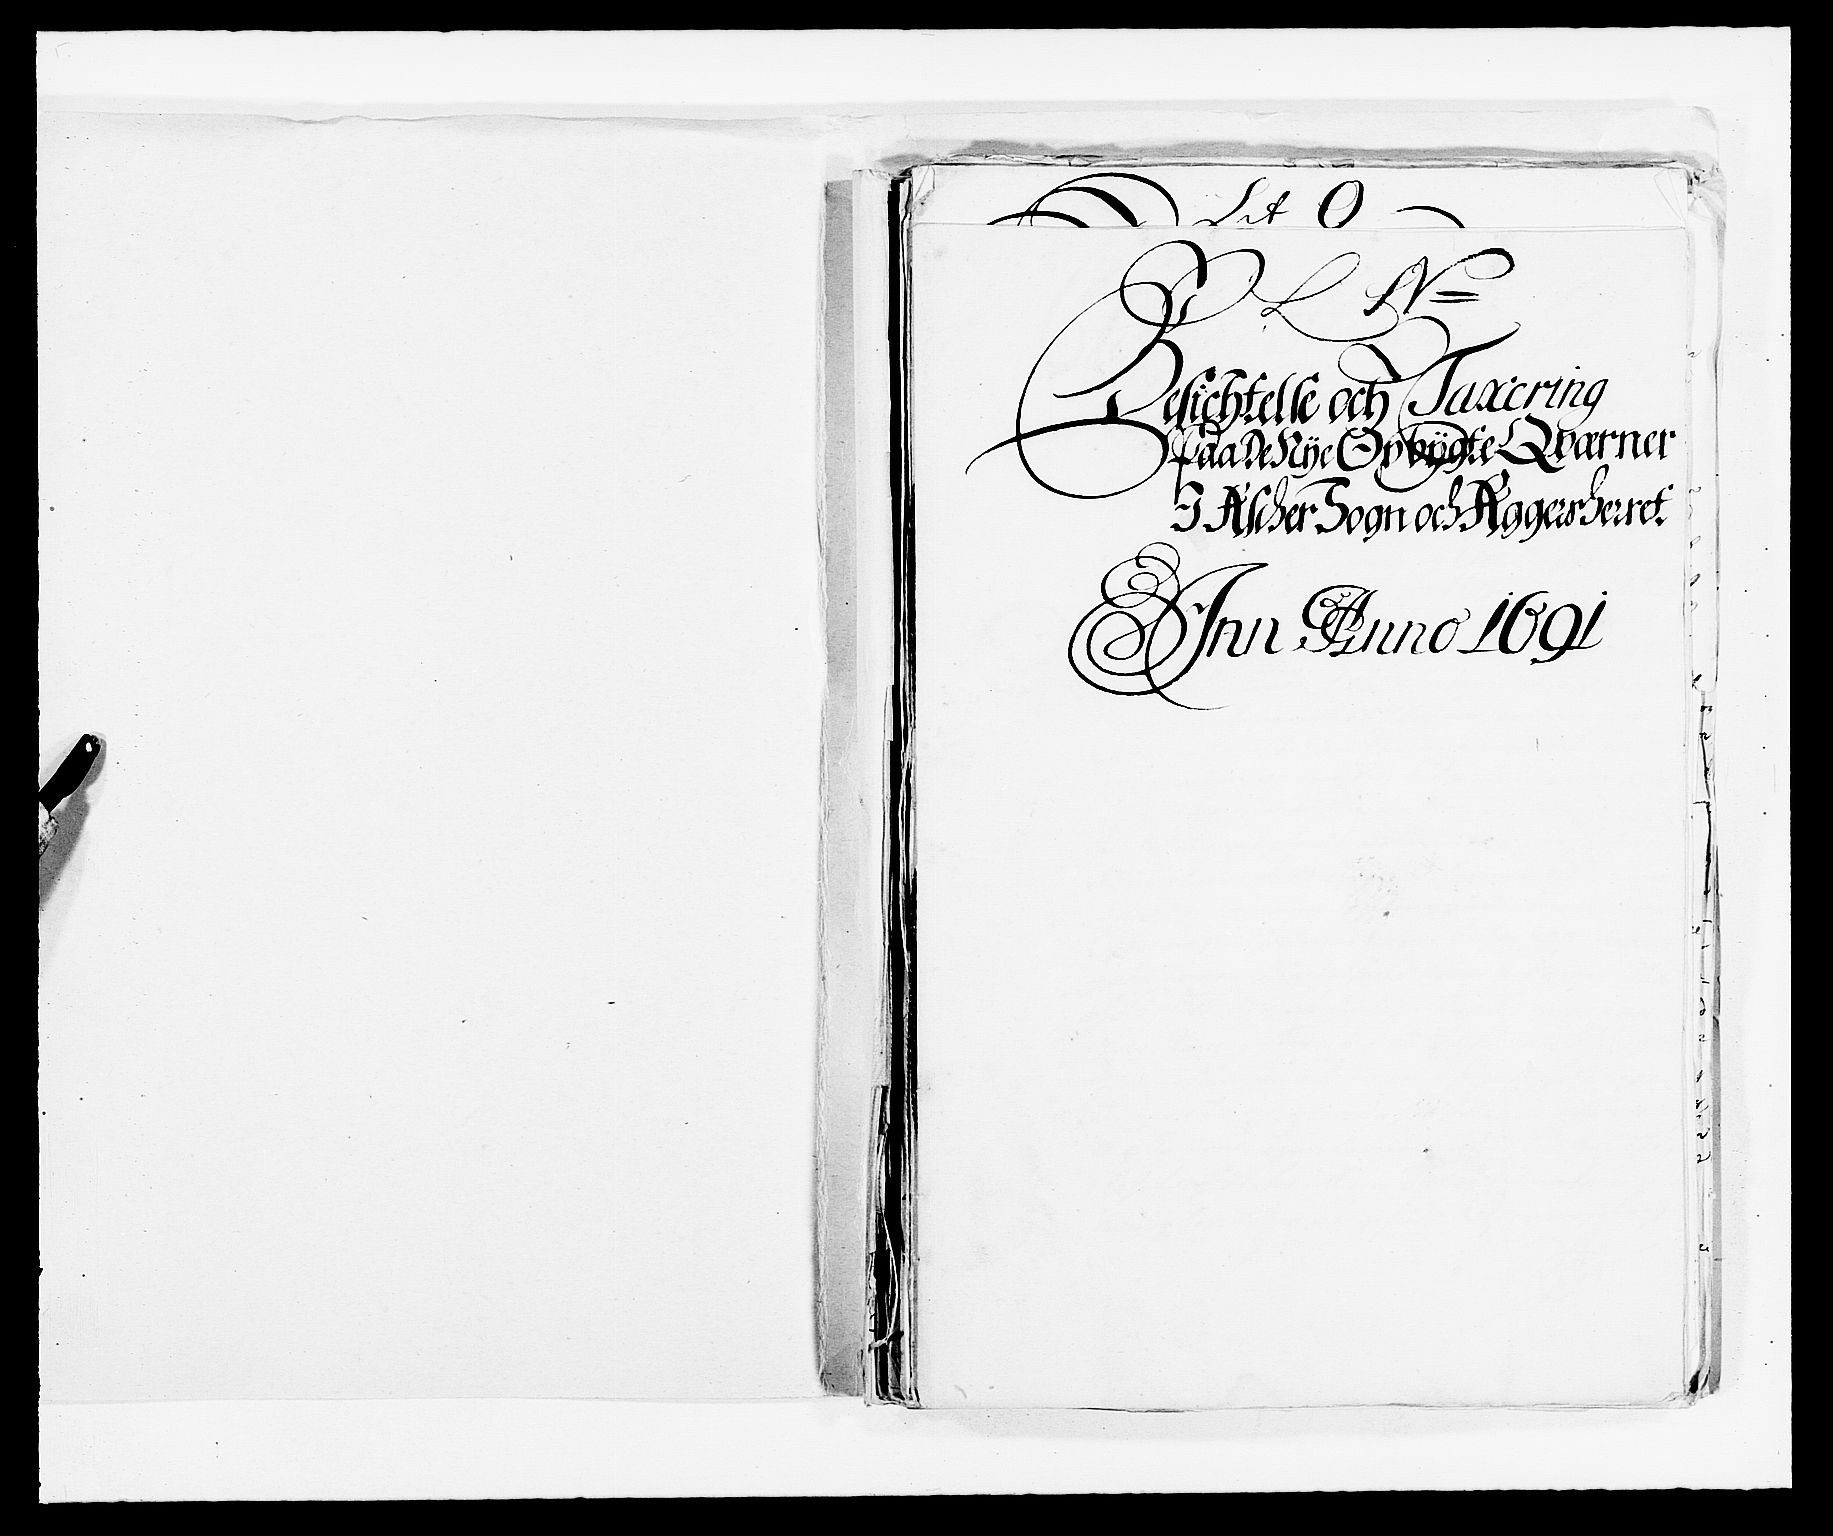 Lit O
L N=
Besichtelse och Taxering
Paa De Nÿe Opbÿgte Qværner
I Ascher Sogn och Aggersherret
Inn Anno 1691